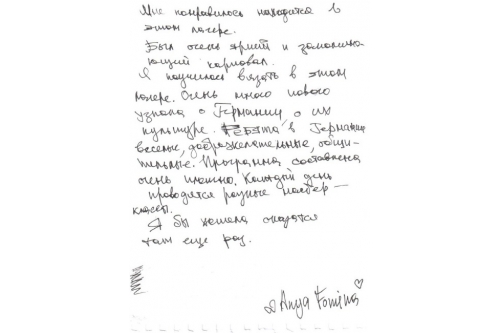 Мне понравилось находится в
этом лагере.
Был очень яркий и запомина
ющий карнавал.
Я научилась вязать в этом
лагере. Очень много нового
узнала о Германии, о их
культуре. Ребята в Германии
веселые, доброжелательные, общи-
тельные. Программа составлена
очень плотно. Каждый день
проводятся разные мастер-
классы.
Я бы хотела оказатся
там еще раз.
Anya Fomina